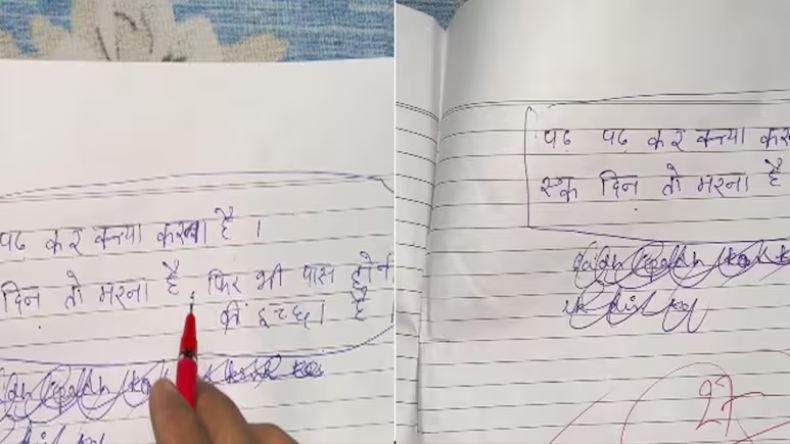 पढ कर क्या करना है ।
दिन तो मरना है , फिर भी पास होने
की इच्छा है
पढ पढ कर क्या कर
एक दिन तो मरना है
27